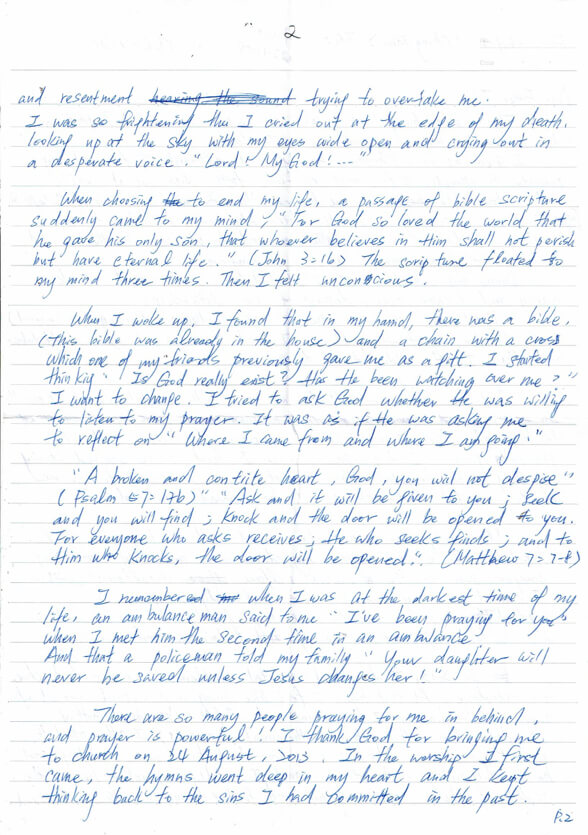 2
and resentment hearing the sound trying to overtake me.
I was so frightening that I cried out at the edge of my death,
looking up at the sky with my eyes wide open and crying out in
a desperate voice. "Lord! My God!---"
When choosing to to end my life, a passage of bible scripture
suddenly came to my mind, "For God so loved the world that
he gave his only son, that whoever believes in Him shall not perish
but have eternal life." (John 3=16) The scripture floated to
my mind three times. Then I felt unconscious.
When I woke up, I found that in my hand, there was a bible,
(This bible was already in the house) and a chain with a cross
which one of my friends previously gave me as a gift. I started
thinking "Is God really exist? Has He been watching over me?"
I want to change. I tried to ask God whether He was willing
to listen to my prayer. It was as if He was asking me
to reflect on "Where I came from and where I am going."
"A broken and contrite heart, God, you will not despise"
(Psalm 51=17b)" "Ask and it will be given to you; seek
and you will find; knock and the door will be opened to you.
For everyone who asks receives; He who seeks finds; and to
Him who knocks, the door will be opened." (Matthew 7=7-8)
I remembered when I was at the darkest time of my
life, an ambulance man said to me "I've been praying for you"
when I met him the second time in an ambulance
And that a policeman told my family "Your daughter will
never be saved unless Jesus changes her!"
There are so many people praying for me in behind,
and prayer is powerful! I thank God for bringing me
to church on 24 August, 2013. In the worship I first
came, the hymns went deep in my heart and I kept
thinking back to the sins I had committed in the past.
P.2